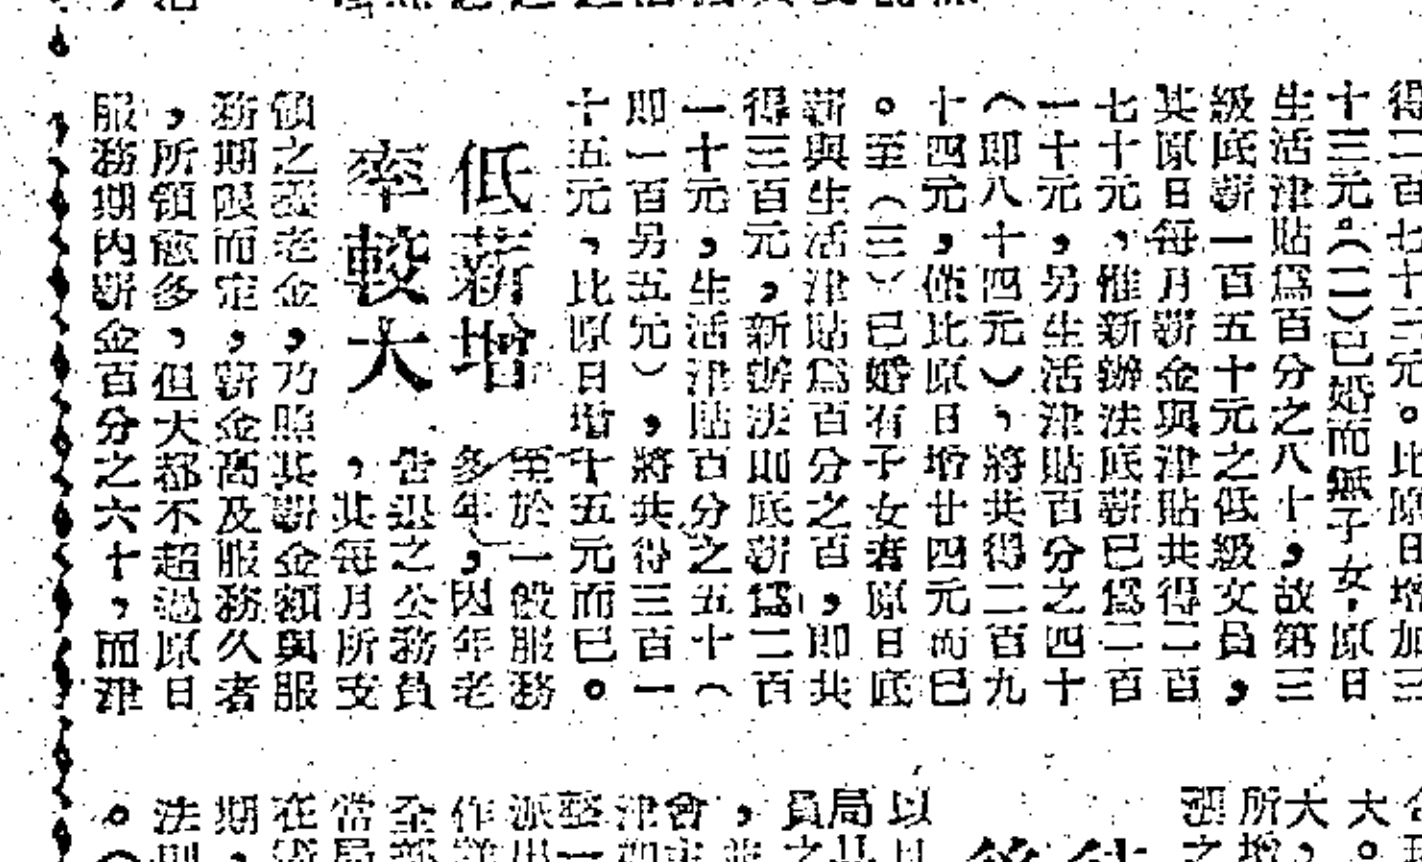 得二百七十三元。比原日增加三
十三元。(二)已婚而無子女,原日
生活津貼爲百分之八十,故第三
級底薪一百五十元之低級文員,
其原日每月薪金與津貼共得二百
七十元,惟新辦法底薪已爲二百
一十元,另生活津貼百分之四十
(即八十四元),將共得二百九
十四元,僅比原日增廿四元而已
。至(三)已婚有子女者原日底
薪與生活津貼爲百分之百,即共
得三百元,新辦法則底薪爲二百
一十元,生活津貼百分之五十(
即一百另五元),將共得三百一
十五元,比原日增十五元而已。
低薪增
率較大
至於一般服務
多年,因年老
告退之公務員
,其每月所支
領之養老金,乃照其薪金額與服
務期限而定,薪金高及服務久者
,所領愈多,但大都不超過原日
服務期內薪金百分之六十,而津
大
所大
之增,
以
員局
,
會
津
一
派
作
全
當局
在
期,
法則
。(